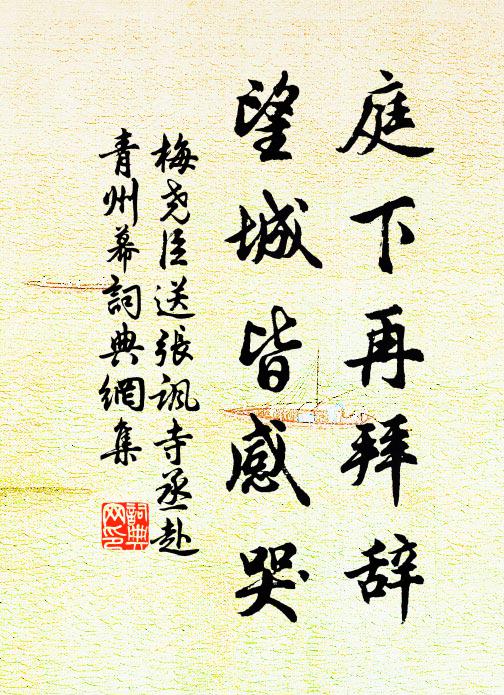 庭下再拜辞
望城皆感哭
梅尧臣送張諷寺丞赴
青州幕詞典網集
詞典
网印